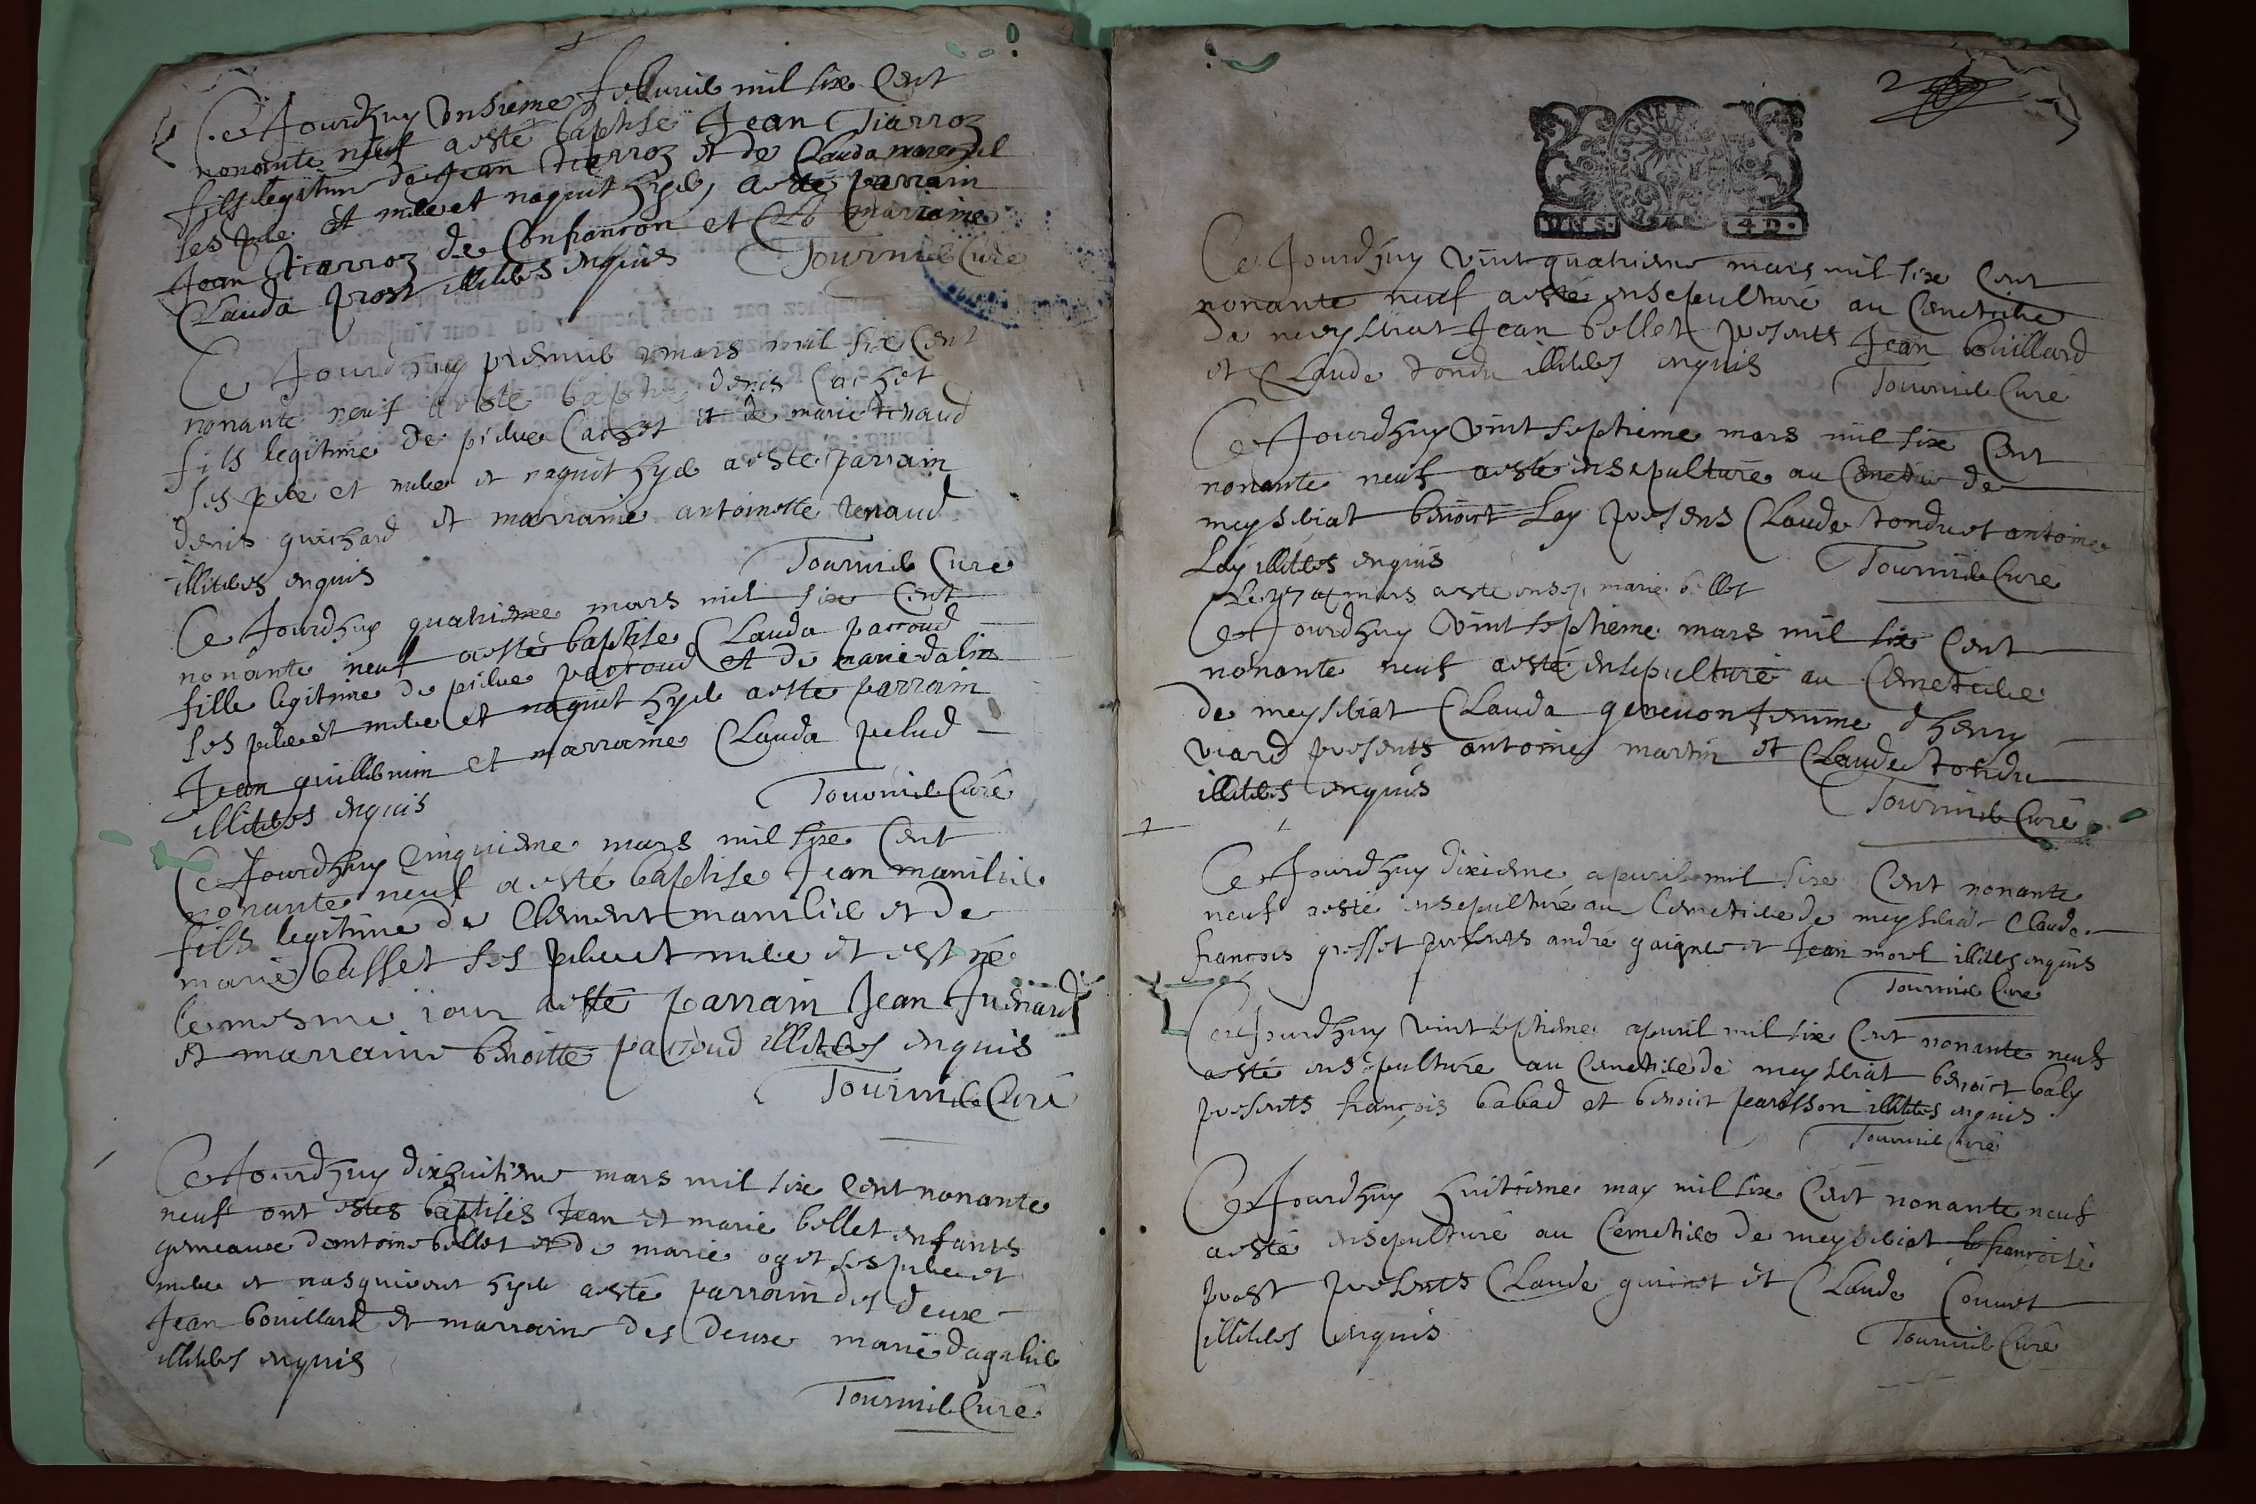 Ce Jourdhuy Onsieme feburié mil six Cent
nonante neuf a esté baptise Jean Tiarroz
fils legitim de Jean Tiarroz et de Clauda
ses pere et mere et naquit hyer a esté parrain
Jean Tiarroz de Confrancon et la marraine
Clauda prost illiteres enquis Tournie Curé
Ce Jourdhuy premier mars mil six Cent
nonante neuf a esté baptisé denis Cachet
fils legitime de pierre Cachet et de marie renaud
ses pere et mere et naquit hyer a esté parrain
denis guichard et marraine antoinette renaud
illiteres enquis Tournier Curé
Ce Jourdhuy quatrieme mars mil six Cent
nonante neuf a esté baptise Clauda parroud
fille legitime de pierre parroud et de marie dalin
ses pere et mere et naquit hyer a esté parrain
Jean guillermin et marraine Clauda pelud
illiteres enquis Tournier Curé
Ce Jourdhuy Cinquieme mars mil six Cent
nonante neuf a esté baptise Jean manilier
fils legitime de Clement manilier et de
marie basset ses pere et mere et est né
le mesme iour a esté parrain Jean fuenard
et marraine benoitte parroud illiteres enquis
Tournier Curé
Ce Jourdhuy dixhuitieme mars mil six Cent nonante
neuf ont estes baptisés Jean et marie bellet enfants
gemeaux dantoine bellet et de marie oget ses pere et
mere et nasquirent hyer a esté parrain des deux
Jean bouillard et marraine des deux marie dagalier
illiteres enquis
Tournier Curé
2
Ce Jourdhuy vint quatrieme mars mil six Cent
nonante neuf a esté ensepulturé au Cemetiere
de meyseriat Jean bellet presents Jean bouillard
et Claude tondu illiteres enquis Tournier Curé
Ce Jourdhuy vint septieme mars mil six Cent
nonante neuf a esté ensepulturé au Cemetier de
meyseriat benoict Lay presens Claude tondu et antoine
Lay illiteres enquis Tournier Curé
Le 27 mars a esté ensep. marie bellet
Ce Jourdhuy vint septieme mars mil six Cent
nonante neuf a esté ensepulturé au Cemetiere
de meyseriat Clauda genevon femme d henry
viard presents antoine martin et Claude tondu
illiteres enquis Tournier Curé
Ce Jourdhuy dixieme apuril mil six Cent nonante
neuf a esté ensepulturé au Cemetiere de meyseriat Claude
francois gresset presents andré gaigne et Jean morel illiteres enquis
Tournier Curé
Ce Jourdhuy vint septieme apuril mil six Cent nonante neuf
a esté ensepulturé au Cemetiere de meyseriat benoict baly
presents françois babad et benoict pearesson illiteres enquis
Tournier Curé
Ce Jourdhuy huitieme may mil six Cent nonante neuf
a esté ensepulturé au Cemetiere de meyseriat francoise
prost presents Claude guinet et Claude Convert
illiteres enquis Tournier Curé